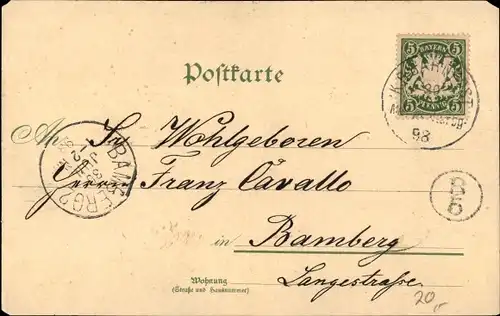 5 BAYERN 5
PFENNIG
Postkarte
98
An Sr Wohlgeboren
Herrn Franz Cavallo
BAMBERG 2
B/5
in Bamberg
Wohnung
(Straße und Hausnummer)
Langestraße
20,-